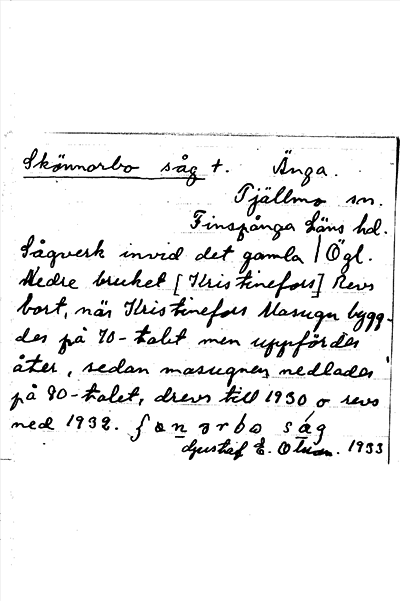 Skönnorbo såg †. Änga.
Tjällmo sn.
Finspånga Läns hd.
Sågverk invid det gamla / Ögl.
Nedre bruket [Kristinefors] Revs
bort, när Kristinefors Masugn bygg-
des på 70-talet men uppfördes
åter, sedan masugnen nedlades
på 90-talet, drevs till 1930 o revs
ned 1932. såg
Gustaf E. 1933